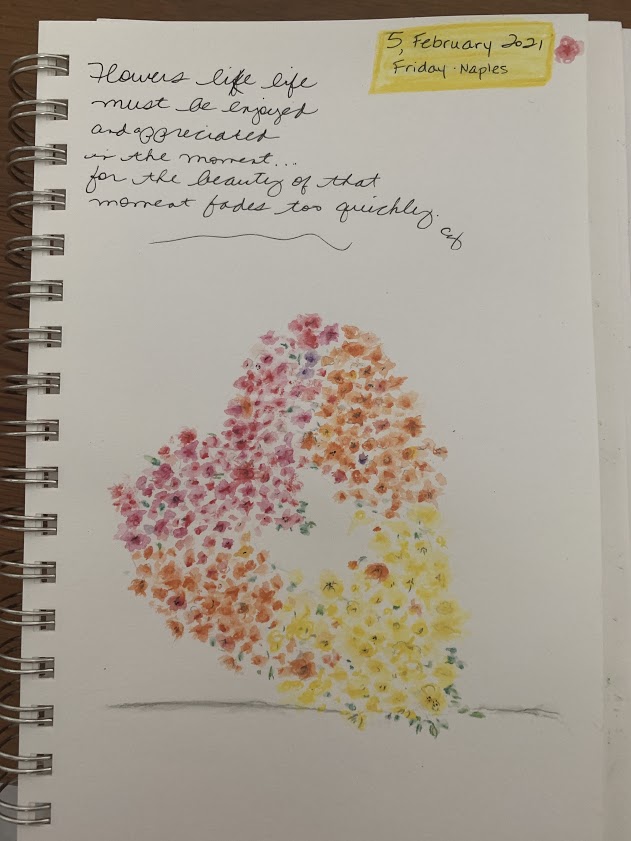 Flowers like life
must be enjoyed
and appreciated
in the moment...
for the beauty of that
moment fades too quickly.
5, February 2021
Friday · Naples